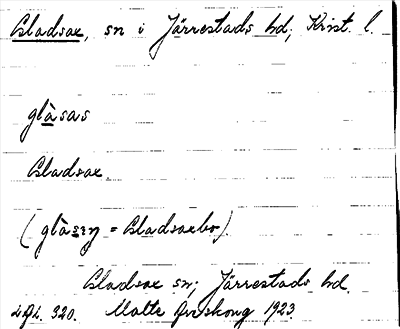 Gladsax, sn i Järrestads hd; Krist. l.
glàsas
Gladsax
(glàsɪŋ = Gladsaxbo).
Gladsax sn; Järrestads hd.
320. Malte 1923.